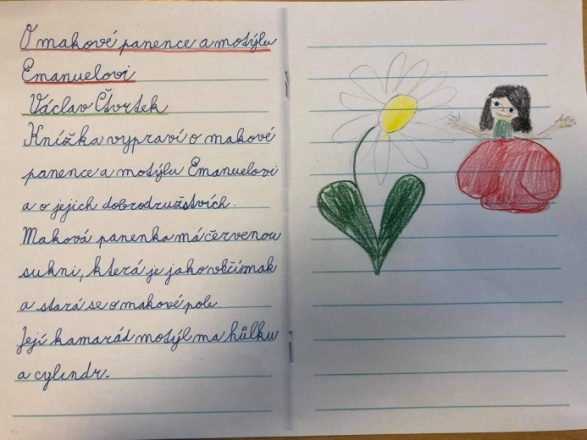 O makové panence a motýlu
Emanuelovi
Václav Čtvrtek
Knížka vypraví o makové
panence a motýlu Emanuelovi
a o jejich dobrodružstvích.
Maková panenka má červenou
sukni, která je jako vlčí mak
a stará se o makové pole.
Její kamarád motýl ma hůlku
a cylindr.